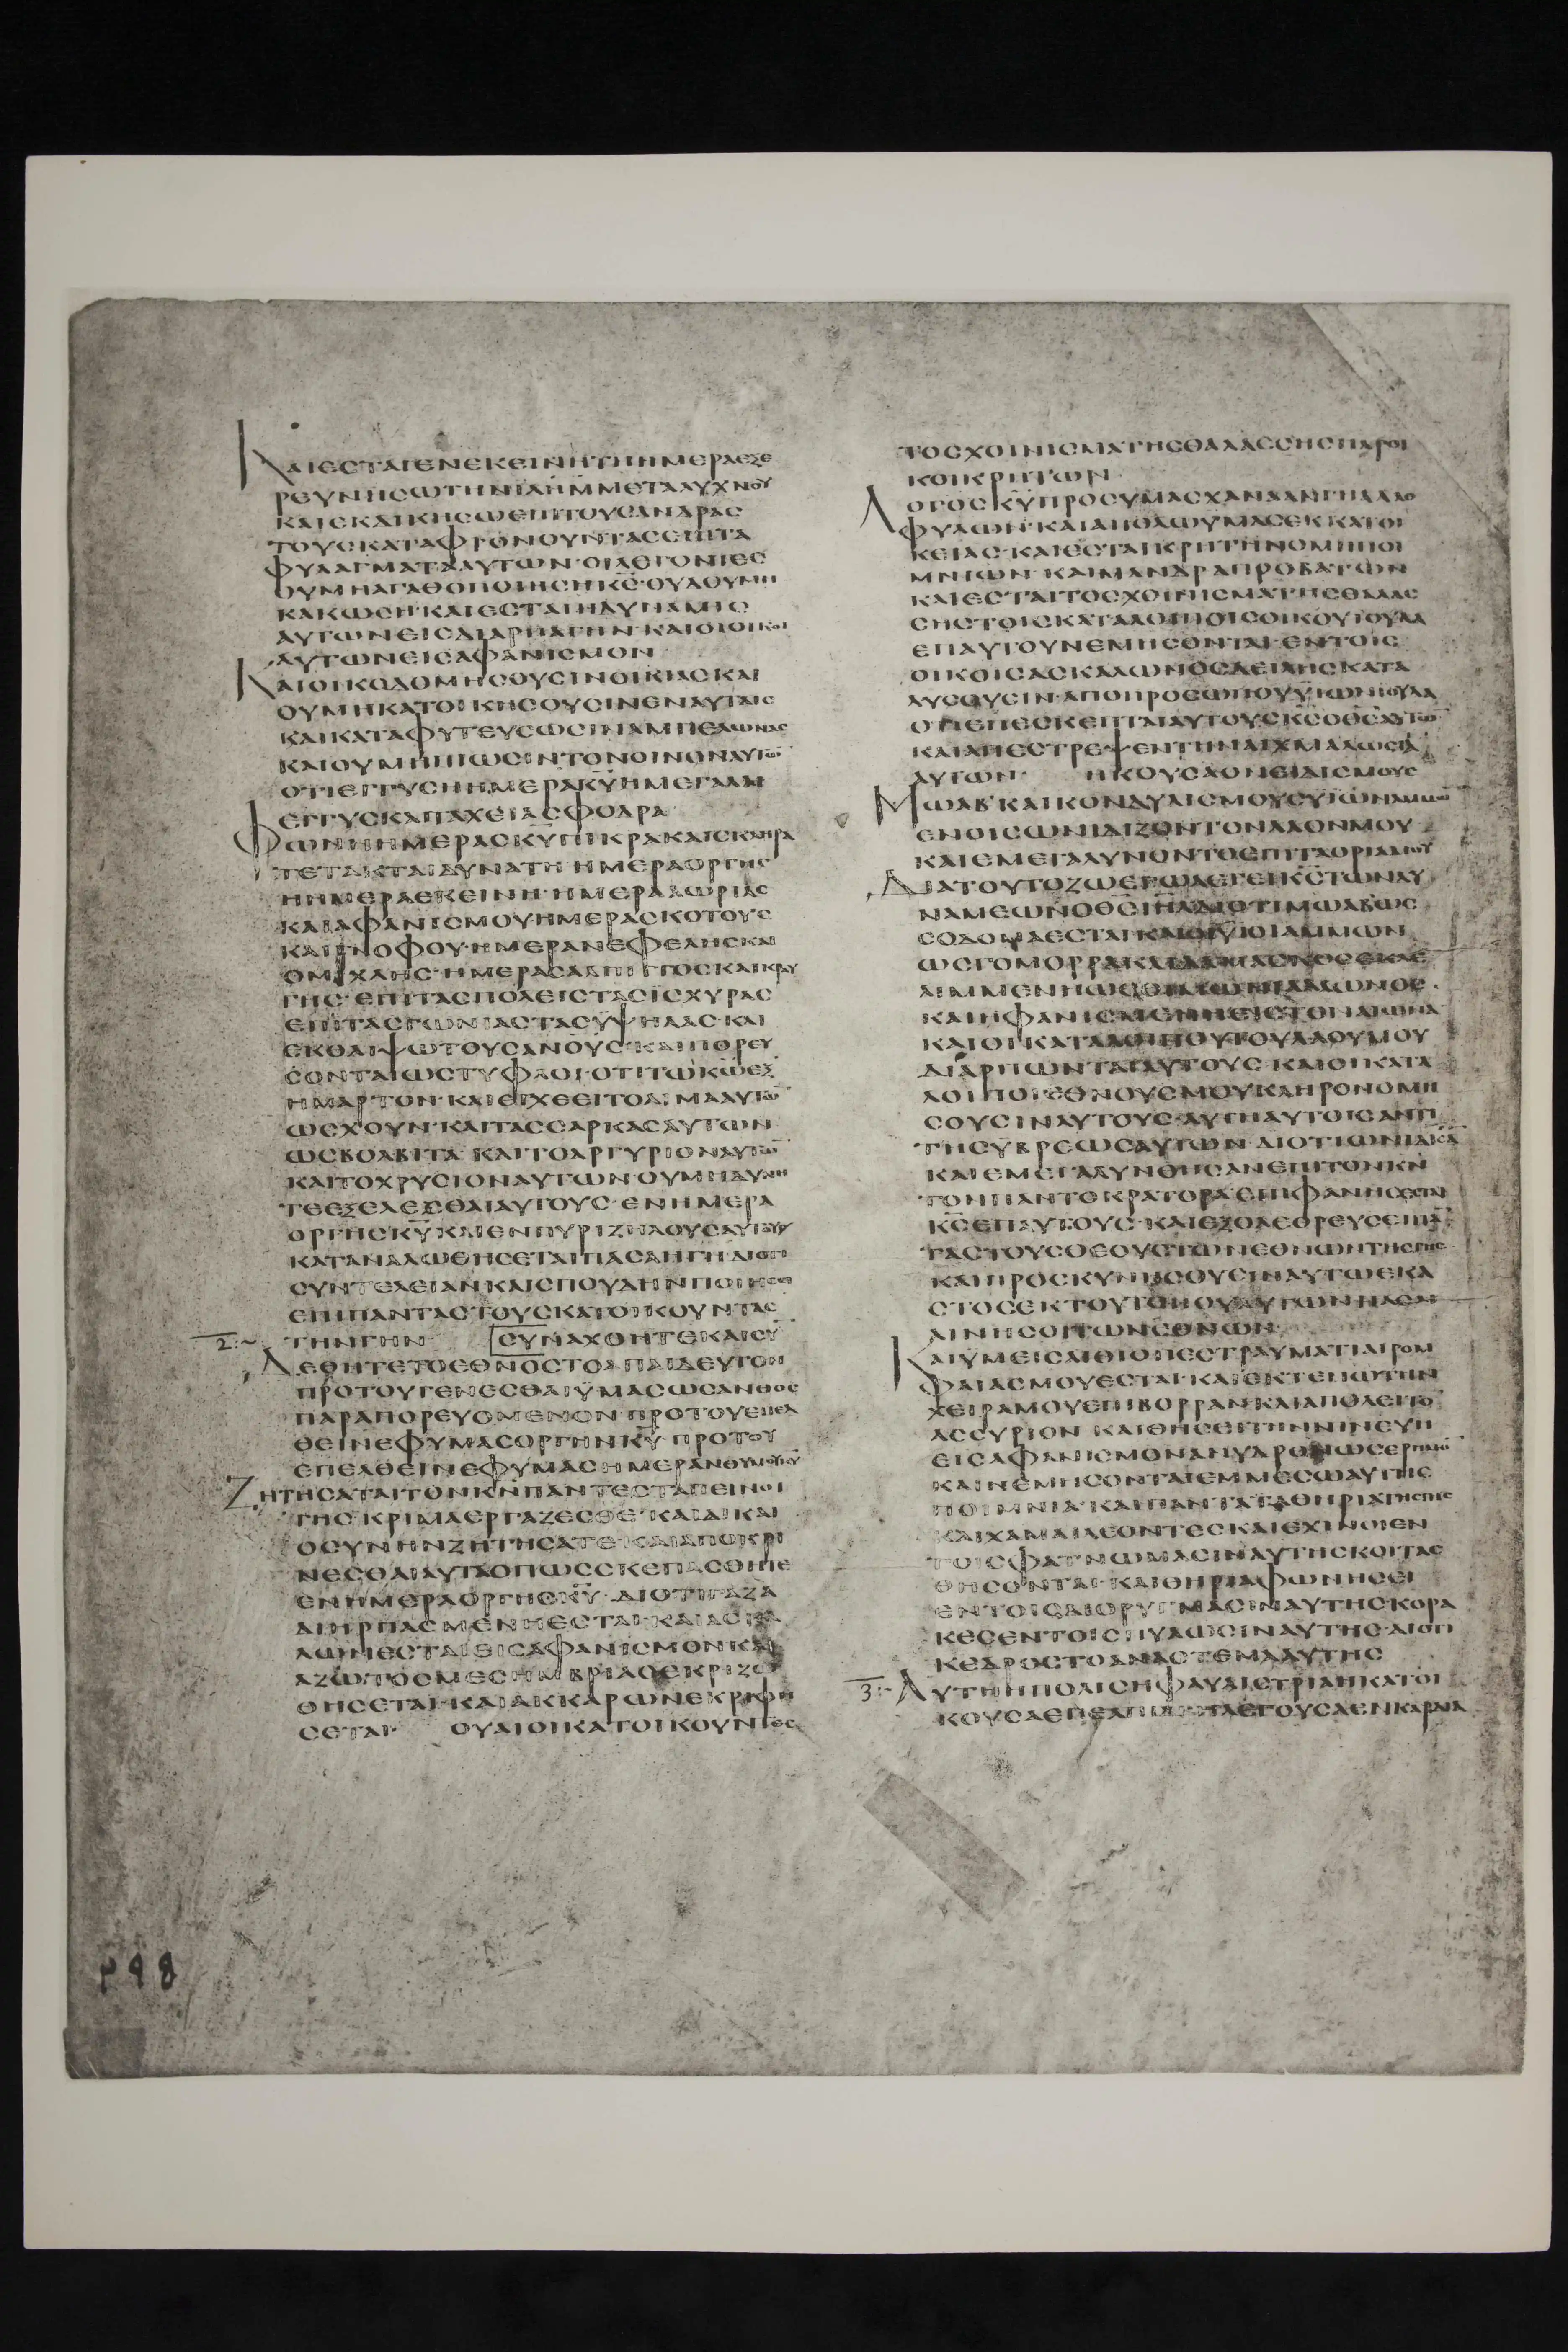 ΚΑΙΕCΤΑΙΕΝΕΚΕΙΝΗΤΗΗΜΕΡΑΕΞΕ
ΡΕΥΝΗCΩΤΗΝΙΛΗΜΜΕΤΑΛΥΧΝΟΥ
ΚΑΙΕΚΔΙΚΗCΩΕΠΙΤΟΥCΑΝΔΡΑC
ΤΟΥCΚΑΤΑΦΡΟΝΟΥΝΤΑCΕΠΙΤΑ
ΦΥΛΑΓΜΑΤΑΑΥΤΩΝ·ΟΙΛΕΓΟΝΤΕC
ΟΥΜΗΑΓΑΘΟΠΟΙΗCΗΚC·ΟΥΔΟΥΜΗ
ΚΑΚΩCΗ·ΚΑΙΕCΤΑΙΗΔΥΝΑΜΙC
ΑΥΤΩΝΕΙCΔΙΑΡΠΑΓΗΝ·ΚΑΙΟΙΟΙΚΟΙ
ΑΥΤΩΝΕΙCΑΦΑΝΙCΜΟΝ
ΚΑΙΟΙΚΟΔΟΜΗCΟΥCΙΝΟΙΚΙΑCΚΑΙ
ΟΥΜΗΚΑΤΟΙΚΗCΟΥCΙΝΕΝΑΥΤΑΙC
ΚΑΙΚΑΤΑΦΥΤΕΥCΩCΙΝΑΜΠΕΛΩΝΑC
ΚΑΙΟΥΜΗΠΙΩCΙΝΤΟΝΟΙΝΟΝΑΥΤΩ̅
ΟΤΙΕΓΓΥCΗΗΜΕΡΑΚΥΗΜΕΓΑΛΗ
ΕΓΓΥCΚΑΙΤΑΧΕΙΑCΦΟΔΡΑ
ΦΩΝΗΗΜΕΡΑCΚΥΠΙΚΡΑΚΑΙCΚΛΗΡΑ
ΤΕΤΑΚΤΑΙΔΥΝΑΤΗ·ΗΜΕΡΑΟΡΓΗC
ΗΗΜΕΡΑΕΚΕΙΝΗ·ΗΜΕΡΑΑΩΡΙΑC
ΚΑΙΑΦΑΝΙCΜΟΥ·ΗΜΕΡΑCΚΟΤΟΥC
ΚΑΙΓΝΟΦΟΥ·ΗΜΕΡΑΝΕΦΕΛΗCΚΑΙ
ΟΜΙΧΛΗC·ΗΜΕΡΑCΑΛΠΙΓΓΟCΚΑΙΚΡΑΥ
ΓΗC·ΕΠΙΤΑCΠΟΛΕΙCΤΑCΙCΧΥΡΑC
ΕΠΙΤΑCΓΩΝΙΑCΤΑCΥΨΗΛΑC·ΚΑΙ
ΕΚΘΛΙΨΩΤΟΥCΑΝΟΥC·ΚΑΙΠΟΡΕΥ
CΟΝΤΑΙΩCΤΥΦΛΟΙ·ΟΤΙΤΩΚΩΕΞ
ΗΜΑΡΤΟΝ·ΚΑΙΕΚΧΕΕΙΤΟΑΙΜΑΑΥΤΩ̅
ΩCΧΟΥΝ·ΚΑΙΤΑCCΑΡΚΑCΑΥΤΩΝ
ΩCΒΟΛΒΙΤΑ·ΚΑΙΤΟΑΡΓΥΡΙΟΝΑΥΤΩ̅
ΚΑΙΤΟΧΡΥCΙΟΝΑΥΤΩΝΟΥΜΗΔΥΝΗ
ΤΕΕΞΕΛΕCΘΑΙΑΥΤΟΥC·ΕΝΗΜΕΡΑ
ΟΡΓΗCΚΥ·ΚΑΙΕΝΠΥΡΙΖΗΛΟΥCΑΥΤΟΥ
ΚΑΤΑΝΑΛΩΘΗCΕΤΑΙΠΑCΑΗΓΗ·ΔΙΟΤΙ
CΥΝΤΕΛΕΙΑΝΚΑΙCΠΟΥΔΗΝΠΟΙΗCΕΙ
ΕΠΙΠΑΝΤΑCΤΟΥCΚΑΤΟΙΚΟΥΝΤΑC
2:~ ΤΗΝΓΗΝ· CΥΝΑΧΘΗΤΕΚΑΙCΥ̅
ΔΕΘΗΤΕΤΟΕΘΝΟCΤΟΑΠΑΙΔΕΥΤΟΝ
ΠΡΟΤΟΥΓΕΝΕCΘΑΙΥΜΑCΩCΑΝΘΟC
ΠΑΡΑΠΟΡΕΥΟΜΕΝΟΝ·ΠΡΟΤΟΥΕΠΕΛ
ΘΕΙΝΕΦΥΜΑCΟΡΓΗΝΚΥ·ΠΡΟΤΟΥ
ΕΠΕΛΘΕΙΝΕΦΥΜΑCΗΜΕΡΑΝΘΥΜΟΥΚΥ
ΖΗΤΗCΑΤΑΙΤΟΝΚΝΠΑΝΤΕCΤΑΠΕΙΝΟΙ
ΓΗC·ΚΡΙΜΑΕΡΓΑΖΕCΘΕ·ΚΑΙΔΙΚΑΙ
ΟCΥΝΗΝΖΗΤΗCΑΤΕ·ΚΑΙΑΠΟΚΡΙ
ΝΕCΘΑΙΑΥΤΑΟΠΩCCΚΕΠΑCΘΗΤΕ
ΕΝΗΜΕΡΑΟΡΓΗCΚΥ·ΔΙΟΤΙΓΑΖΑ
ΔΙΗΡΠΑCΜΕΝΗΕCΤΑΙ·ΚΑΙΑCΚΑ
ΛΩΝΕCΤΑΙΕΙCΑΦΑΝΙCΜΟΝ·ΚΑΙ
ΑΖΩΤΟCΜΕCΗΜΒΡΙΑCΕΚΡΙΖΩ
ΘΗCΕΤΑΙ·ΚΑΙΑΚΚΑΡΩΝΕΚΡΙΦΗ
CΕΤΑΙ· ΟΥΑΙΟΙΚΑΤΟΙΚΟΥΝΤΕC
ΤΟCΧΟΙΝΙCΜΑΤΗCΘΑΛΑCCΗCΠΑΡΟΙ
ΚΟΙΚΡΗΤΩΝ
ΛΟΓΟCΚΥΠΡΟCΥΜΑCΧΑΝΑΑΝΓΗΑΛΛΟ
ΦΥΛΩΝ·ΚΑΙΑΠΟΛΩΥΜΑCΕΚΚΑΤΟΙ
ΚΕΙΑC·ΚΑΙΕCΤΑΙΚΡΗΤΗΝΟΜΗΠΟΙ
ΜΝΙΩΝ·ΚΑΙΜΑΝΔΡΑΠΡΟΒΑΤΩΝ
ΚΑΙΕCΤΑΙΤΟCΧΟΙΝΙCΜΑΤΗCΘΑΛΑC
CΗCΤΟΙCΚΑΤΑΛΟΙΠΟΙCΟΙΚΟΥΙΟΥΔΑ
ΕΠΑΥΤΟΥΝΕΜΗCΟΝΤΑΙ·ΕΝΤΟΙC
ΟΙΚΟΙCΑCΚΑΛΩΝΟCΔΕΙΛΗCΚΑΤΑ
ΛΥCΟΥCΙΝ·ΑΠΟΠΡΟCΩΠΟΥΥΙΩΝΙΟΥΔΑ
ΟΤΙΕΠΕCΚΕΠΤΑΙΑΥΤΟΥCΚCΟΘCΑΥΤΩ̅
ΚΑΙΑΠΕCΤΡΕΨΕΝΤΗΝΑΙΧΜΑΛΩCΙΑ̅
ΑΥΤΩΝ· ΗΚΟΥCΑΟΝΕΙΔΙCΜΟΥC
ΜΩΑΒ·ΚΑΙΚΟΝΔΥΛΙCΜΟΥCΥΙΩΝΑΜΜΩ̅
ΕΝΟΙCΩΝΙΔΙΖΟΝΤΟΝΛΑΟΝΜΟΥ
ΚΑΙΕΜΕΓΑΛΥΝΟΝΤΟΕΠΙΤΑΟΡΙΑΜΟΥ
ΔΙΑΤΟΥΤΟΖΩΕΓΩΛΕΓΕΙΚCΤΩΝΔΥ
ΝΑΜΕΩΝΟΘCΙΗΛΔΙΟΤΙΜΩΑΒΩC
CΟΔΟΜΑΕCΤΑΙ·ΚΑΙΟΙΥΙΟΙΑΜΜΩΝ
ΚΑΙΗΦΑΝΙCΜΕΝΗΕΙCΤΟΝΑΙΩΝΑ
ΚΑΙΟΙΚΑΤΑΛΟΙΠΟΙΤΟΥΛΑΟΥΜΟΥ
ΔΙΑΡΠΩΝΤΑΙΑΥΤΟΥC·ΚΑΙΟΙΚΑΤΑ
ΛΟΙΠΟΙΕΘΝΟΥCΜΟΥΚΛΗΡΟΝΟΜΗ
CΟΥCΙΝΑΥΤΟΥC·ΑΥΤΗΑΥΤΟΙCΑΝΤΙ
ΤΗCΥΒΡΕΩCΑΥΤΩΝ·ΔΙΟΤΙΩΝΙΔΙCΑ̅
ΚΑΙΕΜΕΓΑΛΥΝΘΗCΑΝΕΠΙΤΟΝΚΝ
ΤΟΝΠΑΝΤΟΚΡΑΤΟΡΑ·ΕΠΙΦΑΝΗCΕΤΑΙ
ΚCΕΠΑΥΤΟΥC·ΚΑΙΕΞΟΛΕΘΡΕΥCΕΙΠΑ̅
ΤΑCΤΟΥCΘΕΟΥCΤΩΝΕΘΝΩΝΤΗCΓΗC
ΚΑΙΠΡΟCΚΥΝΗCΟΥCΙΝΑΥΤΩΕΚΑ
CΤΟCΕΚΤΟΥΤΟΠΟΥΑΥΤΩΝΠΑCΑΙ
ΑΙΝΗCΟΙΤΩΝΕΘΝΩΝ
ΚΑΙΥΜΕΙCΑΙΘΙΟΠΕCΤΡΑΥΜΑΤΙΑΙΡΟΜ
ΦΑΙΑCΜΟΥΕCΤΑΙ·ΚΑΙΕΚΤΕΝΩΤΗΝ
ΧΕΙΡΑΜΟΥΕΠΙΒΟΡΡΑΝ·ΚΑΙΑΠΟΛΕΙΤΟ̅
ΑCCΥΡΙΟΝ·ΚΑΙΘΗCΕΙΤΗΝΝΙΝΕΥΗ
ΕΙCΑΦΑΝΙCΜΟΝΑΝΥΔΡΟΝΩCΕΡΗΜΟ̅
ΚΑΙΝΕΜΗCΟΝΤΑΙΕΜΜΕCΩΑΥΤΗC
ΠΟΙΜΝΙΑ·ΚΑΙΠΑΝΤΑΤΑΘΗΡΙΑΤΗCΓΗC
ΚΑΙΧΑΜΑΙΛΕΟΝΤΕCΚΑΙΕΧΙΝΟΙΕΝ
ΤΟΙCΦΑΤΝΩΜΑCΙΝΑΥΤΗCΚΟΙΤΑC
ΘΗCΟΝΤΑΙ·ΚΑΙΘΗΡΙΑΦΩΝΗCΕΙ
ΕΝΤΟΙCΔΙΟΡΥΓΜΑCΙΝΑΥΤΗCΚΟΡΑ
ΚΕCΕΝΤΟΙCΠΥΛΩCΙΝΑΥΤΗC·ΔΙΟΤΙ
ΚΕΔΡΟCΤΟΑΝΑCΤΕΜΑΑΥΤΗC
3:~ ΑΥΤΗΗΠΟΛΙCΗΦΑΥΛΙCΤΡΙΑΗΚΑΤΟΙ
898